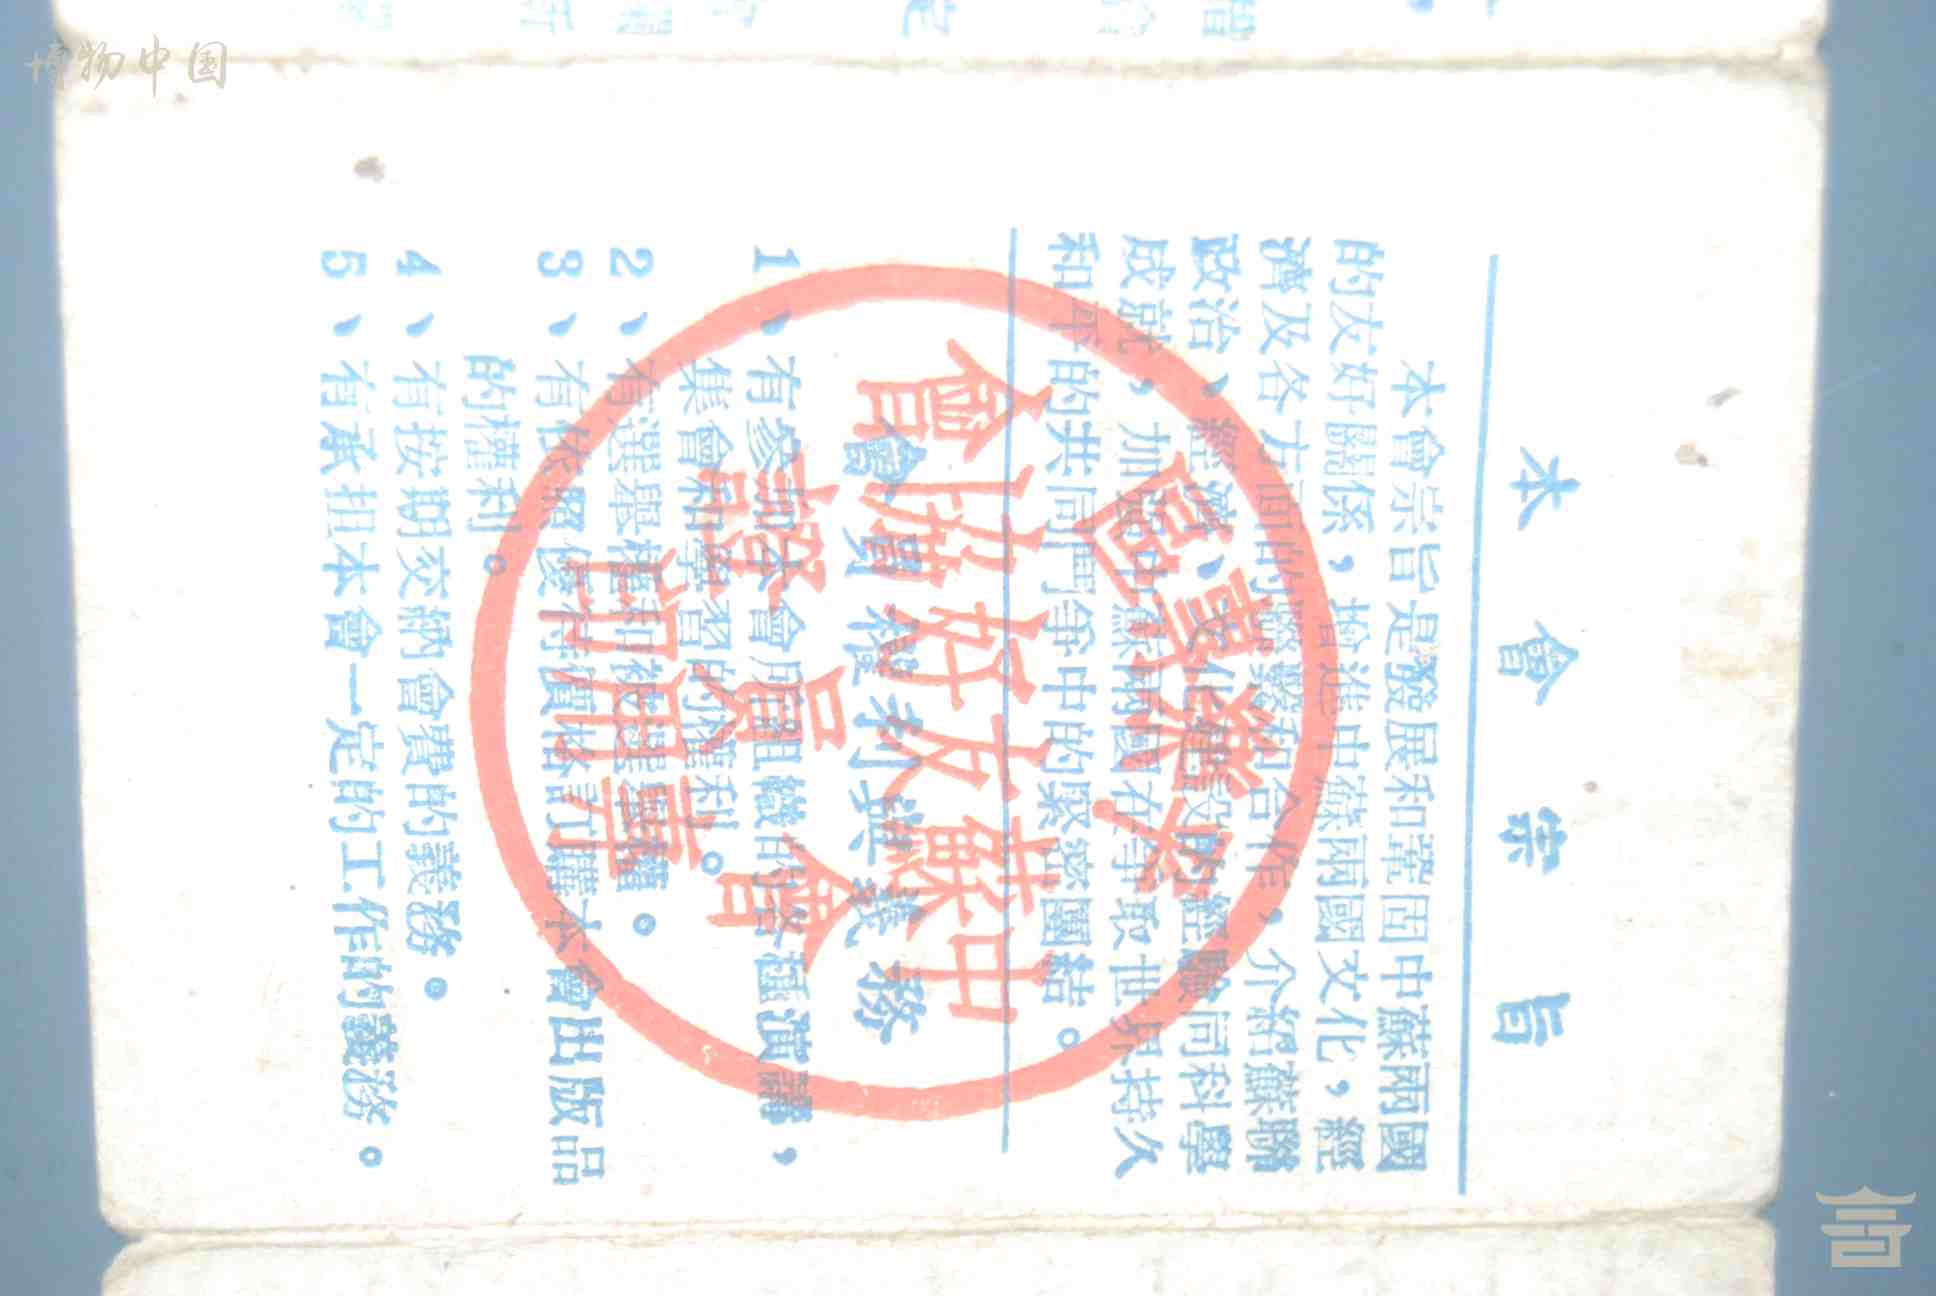 博物中国
本會宗旨
本會宗旨是發展和鞏固中蘇兩國
的友好關係，增進中蘇兩國文化，經
濟及各方面的聯繫和合作，介紹蘇聯
政治、經濟、文化建設的經驗同科學
成就，加強中蘇兩國在爭取世界持久
和平的共同鬥爭中的緊密團結。
會員權利與義務
1、有參加本會所組織的各種演講，
集會和學習的權利。
2、有選舉權和被選舉權。
3、有依照優待價格訂購本會出版品
的權利。
4、有按期交納會費的義務。
5、有承担本會一定的工作的義務。
中蘇友好協會
會員證
專用